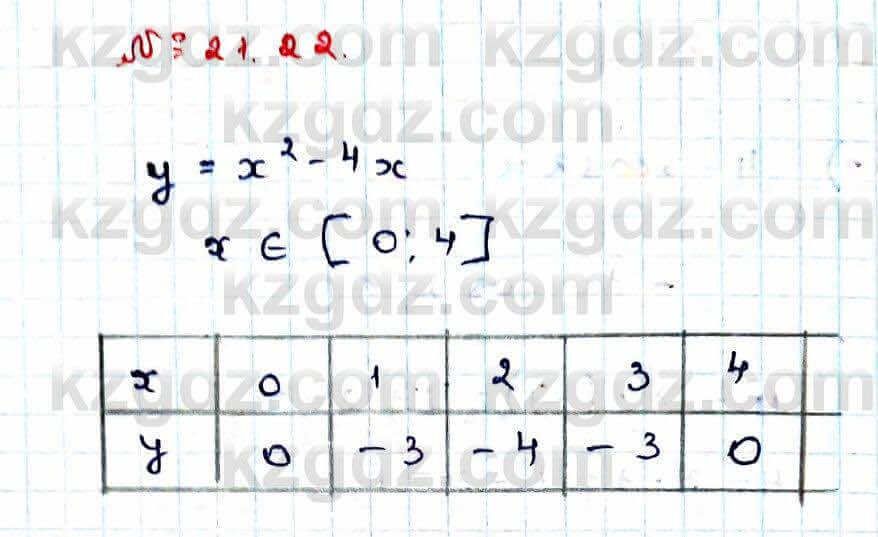 № 21.22.
y = x² - 4x
x ∈ [0; 4]
x 0 1 2 3 4
y 0 -3 -4 -3 0
kzgdz.com kzgdz.com
kzgdz.com
kzgdz.com kzgdz.com
kzgdz.com
kzgdz.com kzgdz.com
kzgdz.com